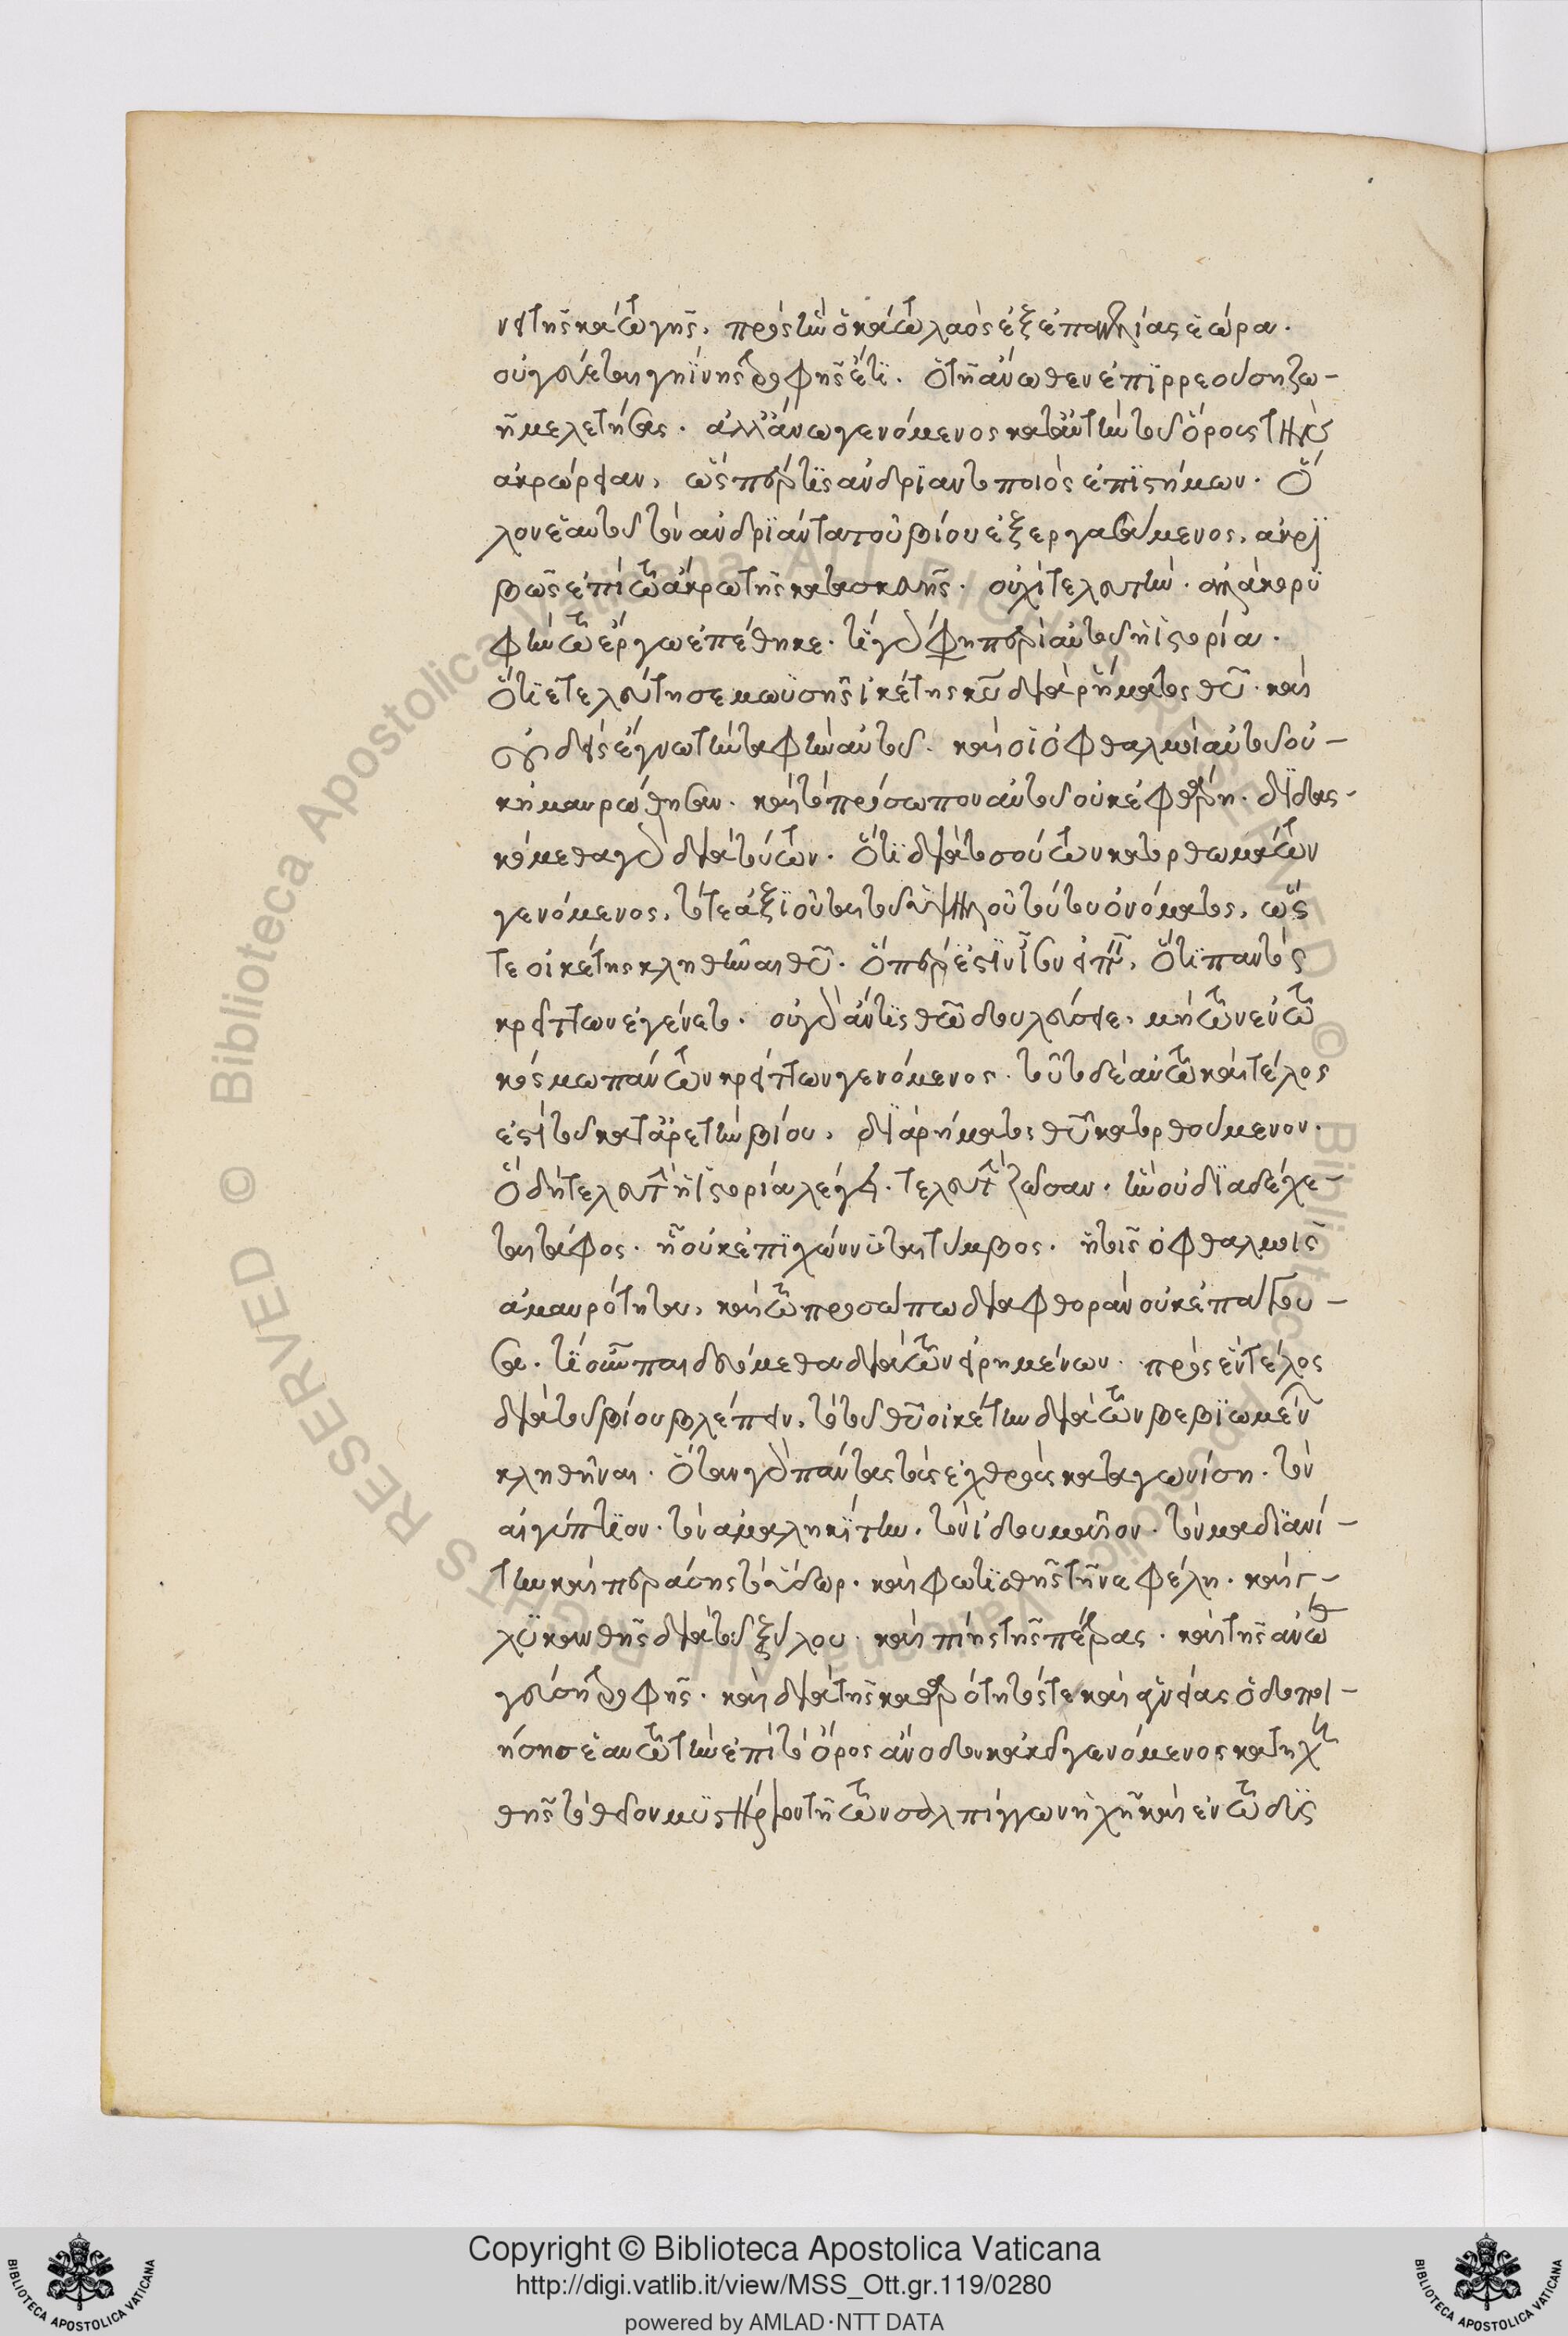 νει τῆς κάτω γῆς, πρὸς ἣν ὁ κάτω λαὸς ἐξ ἐπαγγελίας ἑώρα.
οὐ γεύεται γηΐνης τροφῆς ἔτι. ὁ τῇ ἄνωθεν ἐπϊρρεούση ζω-
ῇ μελετήσας. ἀλλ' ἄνω γενόμενος κατ' αὐτὴν τοῦ ὄρους τὴν
ἀκρώρειαν, ὥσπέρ τις ἀνδριαντοποιὸς ἐπιστήμων. ὅ
λον ἑαυτοῦ τὸν ἀνδριάντα τοῦ βίου ἐξεργασάμενος, ἀκρι
βῶς ἐπὶ τῷ ἄκρω τῆς κατασκευῆς. οὐχὶ τελευτὴν. ἀλλὰ κορυ
φὴν τῷ ἔργω ἐπέθηκε. τί γάρ φη περὶ αὐτοῦ ἡ ἱστορία.
ὅτι ἐτελεύτησε μωϋσῆς οἰκέτης κυ διὰ ῥήματος θυ. καὶ
οὐδεὶς ἔγνω τὴν ταφὴν αὐτοῦ. καὶ οἱ ὀφθαλμοὶ αὐτοῦ οὐ-
κ ἠμαυρώθησαν. καὶ τὸ πρόσωπον αὐτοῦ οὐκ ἐφθάρη. διδασ-
κόμεθα γὰρ διὰ τούτων. ὅτι διὰ τοσούτων κατορθωμάτων
γενόμενος, τότε ἀξιοῦται τοῦ ὑψηλοῦ τούτου ὀνόματος, ὥς
τε οἰκέτης κληθῆναι θυ. ὅπέρ ἐστιν ἶσον εἰπεῖν, ὅτι παντὸς
κρείττων ἐγένετο. οὐ γὰρ ἄν τις θω δουλεύσειε, μὴ τῶν ἐν τῷ
κόσμω πάντων κρείττων γενόμενος. τοῦτο δὲ αὐτῷ καὶ τέλος
ἐστὶ τοῦ κατ' ἀρετὴν βίου, διὰ ῥήματος θυ κατορθούμενον.
ὃ δὴ τελευτὴν ἡ ἱστορία λέγει. τελευτὴν ζῶσαν. ἣν οὐ διαδέχε-
ται τάφος. ἧ οὐκ ἐπιχώννυται τύμβος. ἣ τοῖς ὀφθαλμοῖς
ἀμαυρότητα, καὶ τῷ προσώπω διαφθορὰν οὐκ ἐπάγου-
σα. τί οὖν παιδευόμεθα διὰ τῶν εἰρημένων. πρὸς ἓν τέλος
διὰ τοῦ βίου βλέπειν, τὸ τοῦ θυ οἰκέτην διὰ τῶν βεβιωμένων
κληθῆναι. ὅταν γὰρ πάντας τοὺς ἐχθροὺς καταγωνίση. τὸν
αἰγύπτιον. τὸν ἀμαληκίτην. τὸν ἰδουμαῖον. τὸν μαδιανί-
την καὶ περάσης τὸ ὕδωρ. καὶ φωτισθῆς τῆ νεφέλη. καὶ γ-
λυκανθῆς διὰ τοῦ ξύλου. καὶ πίης τῆς πέτρας. καὶ τῆς ἄνωθεν
γεύση τροφῆς. καὶ διὰ τῆς καθαρότητός τε καὶ ἁγνείας ὁδοποι-
ήσης ἑαυτῷ τὴν ἐπὶ τὸ ὄρος ἄνοδον κἀκεῖ γενόμενος κατηχη
θῆς τὸ θεῖον μυστήριον τῆ τῶν σαλπίγγων ἠχῆ καὶ ἐν τῷ δυς